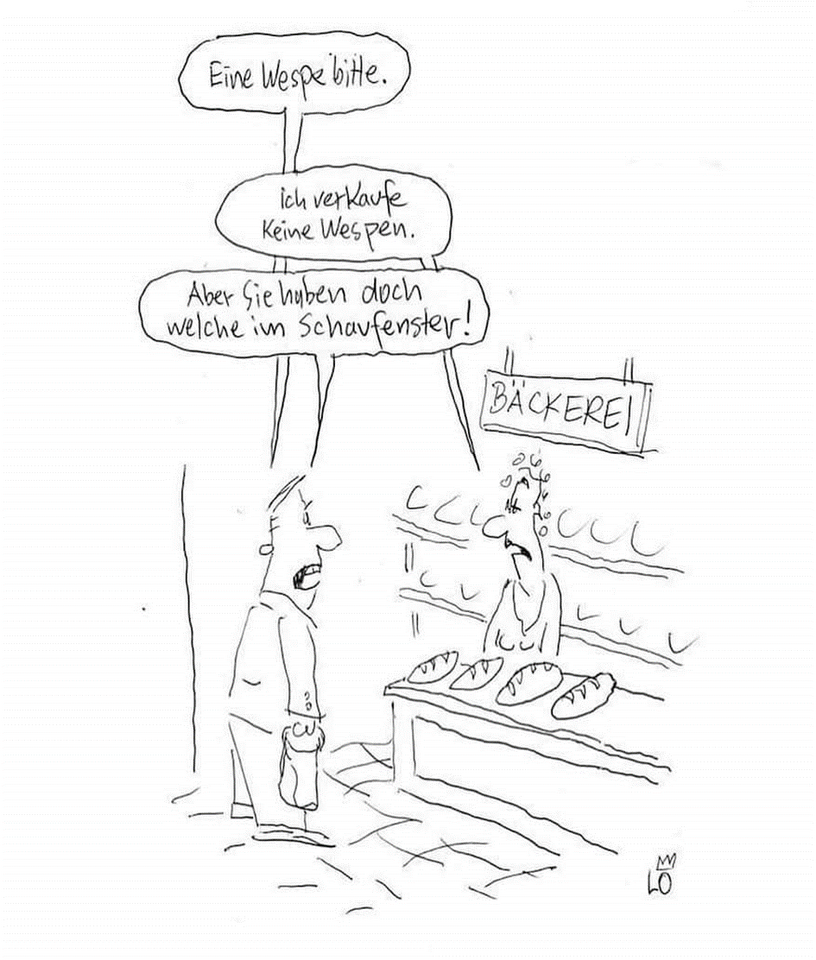 Eine Wespe bitte.
ich verkaufe
keine Wespen.
Aber Sie haben doch
welche im Schaufenster!
BÄCKEREI
LO